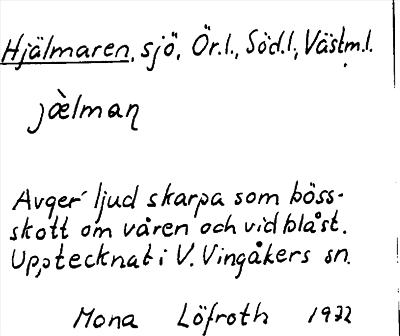 Hjälmaren, sjö, Ör.l., Söd.l., Västm.l.
jæ̀lmaɳ
Avger ljud skarpa som böss-
skott om våren och vid blåst.
Upptecknat i V. Vingåkers sn.
Mona Löfroth 1932